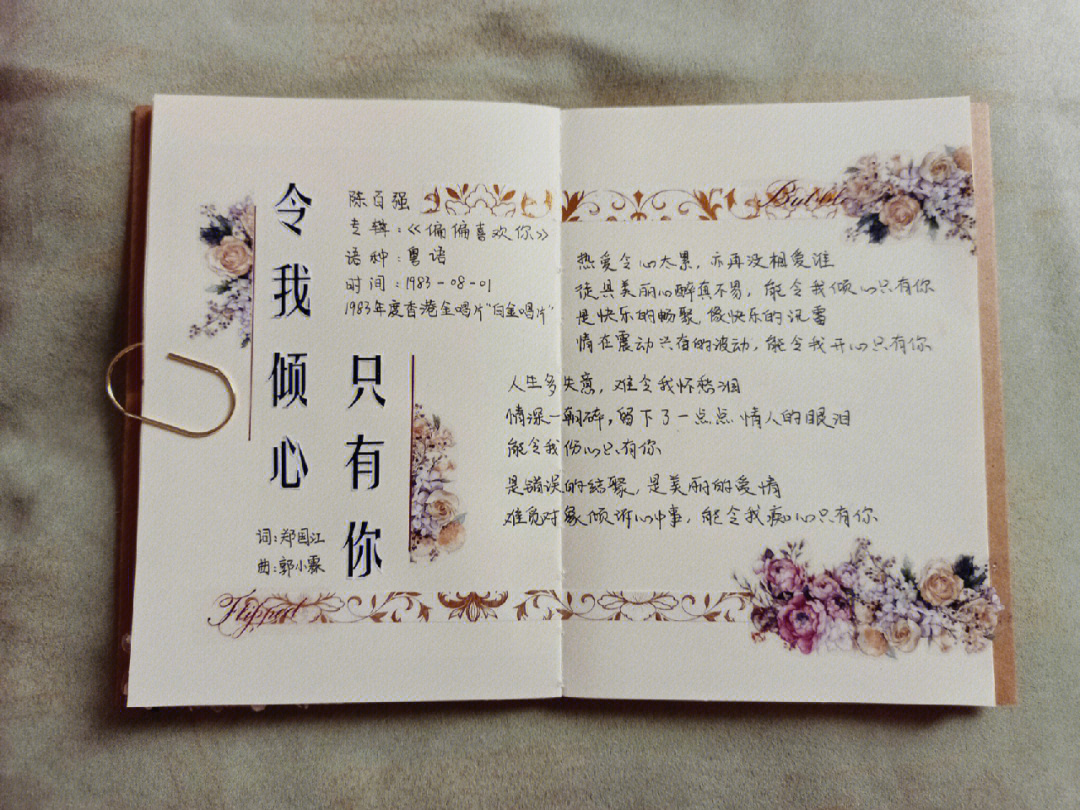 令我倾心
只有你
陈百强
专辑:《偏偏喜欢你》
语种:粤语
时间:1983-08-01
1983年度香港金唱片"白金唱片"
词:郑国江
曲:郭小霖
Flipped
热爱令心太累,亦再没相爱谁
徒具美丽心醉真不易,能令我倾心只有你
是快乐的畅聚,像快乐的汛雷
情在震动只有的波动,能令我开心只有你
人生多失意,难令我怀愁泪
情深一朝碎,留下了一点点情人的眼泪
能令我伤心只有你
是错误的结聚,是美丽的爱情
难觅对象倾诉心中事,能令我痴心只有你